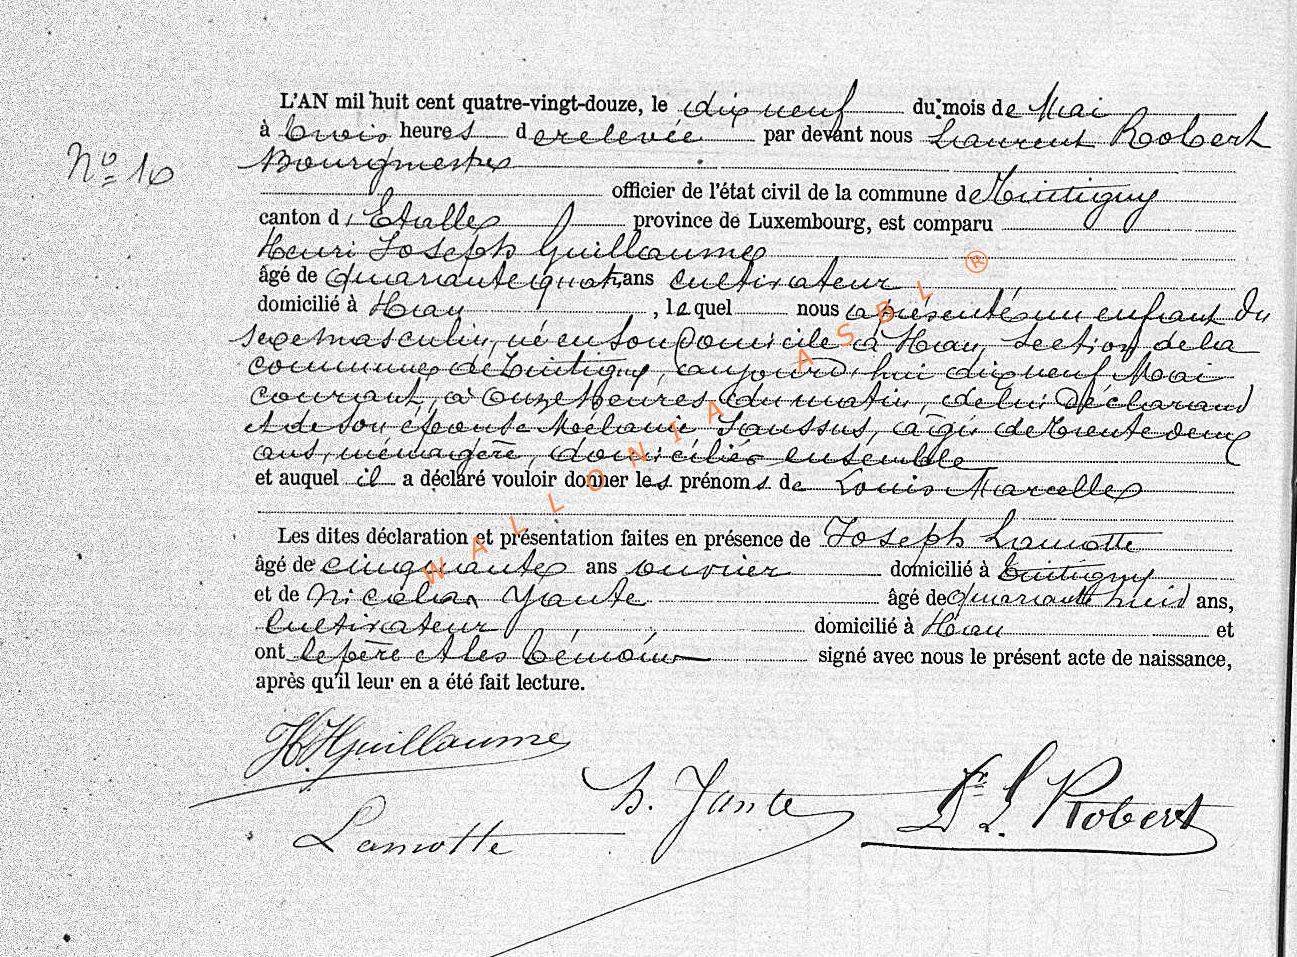 L'AN mil huit cent quatre-vingt-douze, le dix neuf du mois de Mai
à trois heures de relevée par devant nous Laurent Robert
Bourgmestre
N° 10
officier de l'état civil de la commune de Tintigny
canton d'Etalle province de Luxembourg, est comparu
Henri Joseph Guillaume
âgé de quarante quatre ans cultivateur
domicilié à Han, lequel nous a présenté un enfant du
sexe masculin, né en son domicile à Han, section de la
commune de Tintigny, aujourd'hui dix neuf Mai
courant, à onze heures du matin, de lui déclarant
et de son épouse Mélanie Saussus, agée de trente deux
ans, ménagère, domiciliés ensemble
et auquel il a déclaré vouloir donner les prénoms de Louis Marcelle
Les dites déclaration et présentation faites en présence de Joseph Lamotte
âgé de cinquante ans ouvrier domicilié à Tintigny
et de Nicolas Yante âgé de quarante huit ans,
Cultivateur domicilié à Han et
ont le père et les témoins signé avec nous le présent acte de naissance,
après qu'il leur en a été fait lecture.
HJGuillaume
N. Yante
Dr L. Robert
Lamotte
WALLONIA ASBL ®